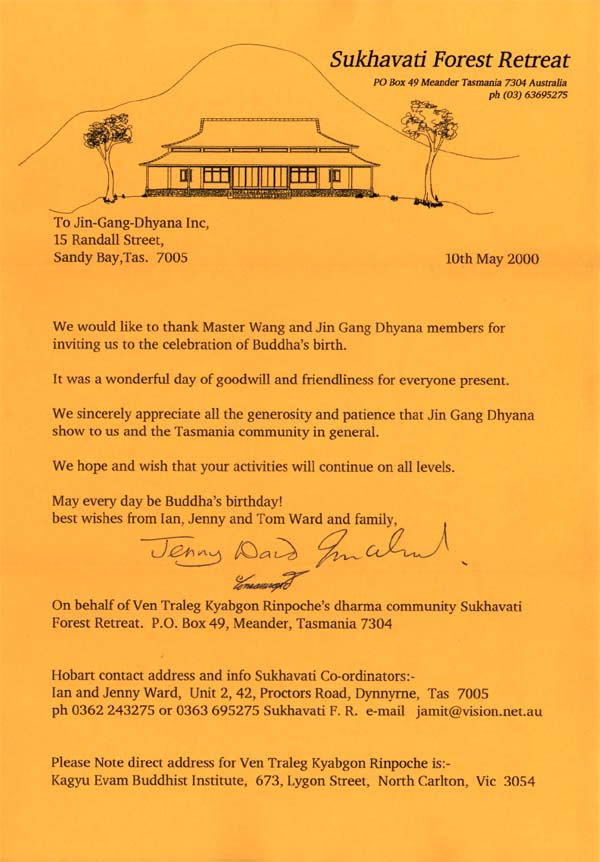 Sukhavati Forest Retreat
PO Box 49 Meander Tasmania 7304 Australia
ph (03) 63695275
To Jin-Gang-Dhyana Inc,
15 Randall Street,
Sandy Bay,Tas. 7005
10th May 2000
We would like to thank Master Wang and Jin Gang Dhyana members for
inviting us to the celebration of Buddha's birth.
It was a wonderful day of goodwill and friendliness for everyone present.
We sincerely appreciate all the generosity and patience that Jin Gang Dhyana
show to us and the Tasmania community in general.
We hope and wish that your activities will continue on all levels.
May every day be Buddha's birthday!
best wishes from Ian, Jenny and Tom Ward and family,
Jenny Ward
On behalf of Ven Traleg Kyabgon Rinpoche's dharma community Sukhavati
Forest Retreat. P.O. Box 49, Meander, Tasmania 7304
Hobart contact address and info Sukhavati Co-ordinators:-
Ian and Jenny Ward, Unit 2, 42, Proctors Road, Dynnyrne, Tas 7005
ph 0362 243275 or 0363 695275 Sukhavati F. R. e-mail jamit@vision.net.au
Please Note direct address for Ven Traleg Kyabgon Rinpoche is:-
Kagyu Evam Buddhist Institute, 673, Lygon Street, North Carlton, Vic 3054